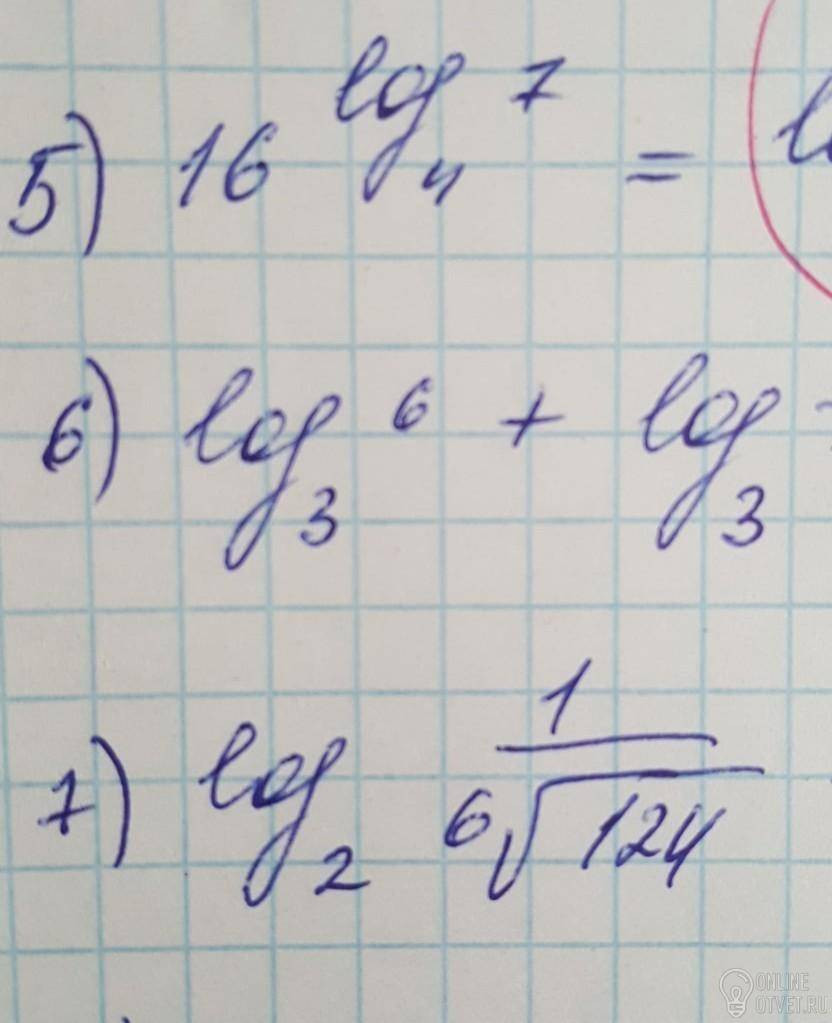 5) 16^{log_4 7} =
6) log_3 6 + log_3
7) log_2 \frac{1}{\sqrt[6]{124}}
ONLINE
OTVET.RU